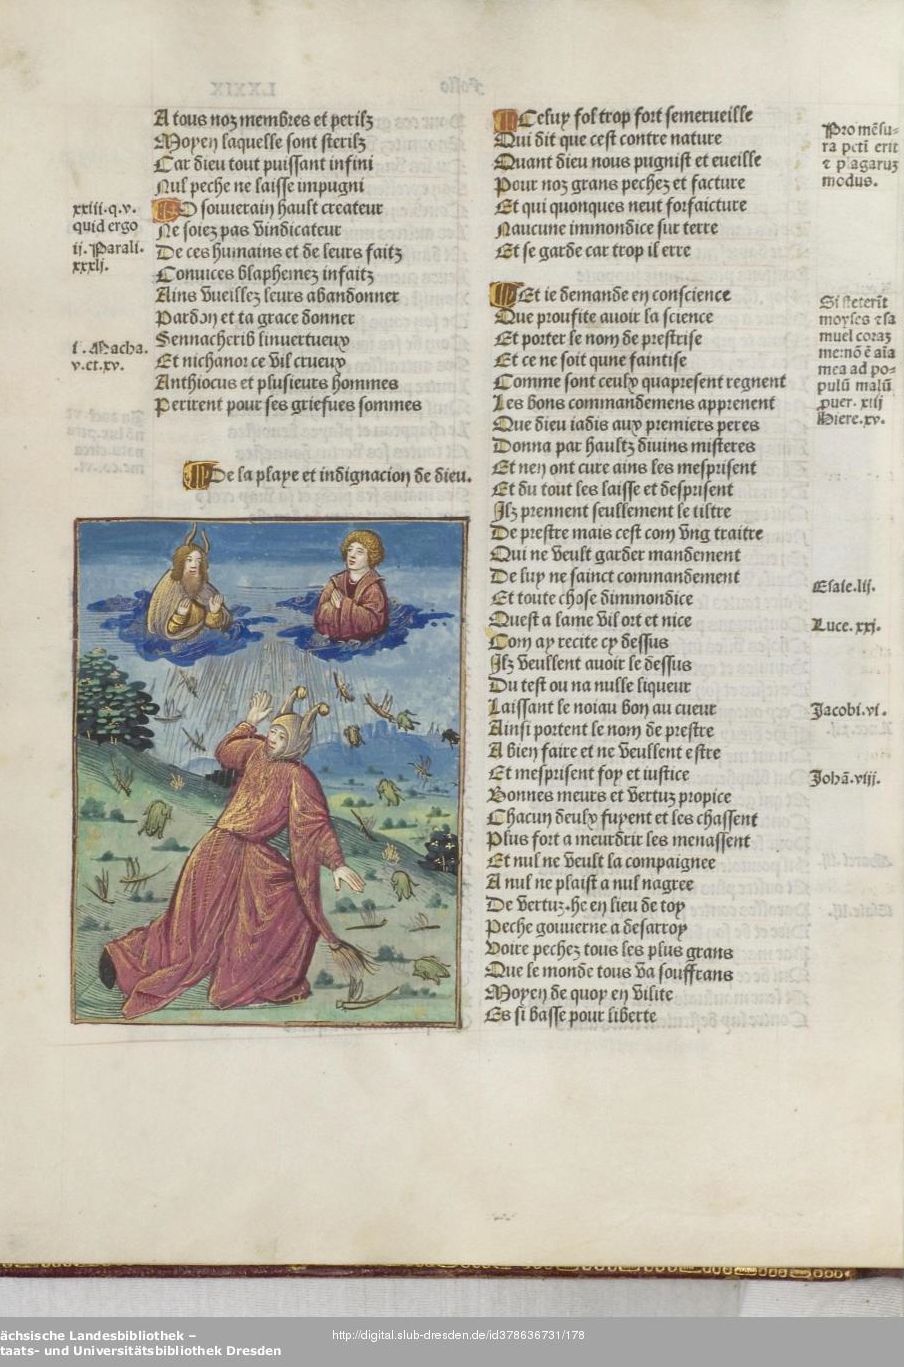 A tous noz membres et perilz
Moyen laquelle sont sterilz
Car dieu tout puissant infini
Nul peche ne laisse impugni
O souuerain hault createur
Ne soiez pas vindicateur
De ces humains et de leurs faitz
Conuices blasphemez infaitz
Ains vueillez leurs abandonner
Pardon et ta grace donner
Sennacherib linuertueux
Et nichanor ce vil crueux
Anthiocus et plusieurs hommes
Perirent pour ses griefues sommes
xxiii.q.v.
quid ergo
ij. Parali.
xxxij.
i. Macha.
v.et.xv.
De la playe et indignacion de dieu.
Celuy fol trop fort semerueille
Qui dit que cest contre nature
Quant dieu nous pugnist et eueille
Pour noz grans pechez et facture
Et qui quonques neut forfaicture
Naucune immondice sur terre
Et se garde car trop il erre
Et ie demande en conscience
Que proufite auoir la science
Et porter le nom de prestrise
Et ce ne soit qune faintise
Comme sont ceulx quapresent regnent
Les bons commandemens apprenent
Que dieu iadis aux premiers peres
Donna par haultz diuins misteres
Et nen ont cure ains les mesprisent
Et du tout les laisse et desprisent
Ilz prennent seullement le tiltre
De prestre mais cest com vng traitre
Qui ne veult garder mandement
De luy ne sainct commandement
Et toute chose dimmondice
Quest a lame vil ort et nice
Com ay recite cy dessus
Ilz veullent auoir le dessus
Du test ou na nulle liqueur
Laissant le noiau bon au cueur
Ainsi portent le nom de prestre
A bien faire et ne veullent estre
Et mesprisent foy et iustice
Bonnes meurs et vertuz propice
Chacun deulx fuyent et les chassent
Plus fort a meurdrir les menassent
Et nul ne veult la compaignee
A nul ne plaist a nul nagree
De vertuz. he en lieu de toy
Peche gouuerne a desarroy
Voire pechez tous les plus grans
Que le monde tous va souffrans
Moyen de quoy en vilite
Es si basse pour liberte
Pro mẽsu-
ra pcti erit
⁊ plagaruʒ
modus.
Si steterĩt
moyses ⁊ sa
muel coraʒ
me:nõ ẽ aĩa
mea ad po-
pulũ malũ
ꝓuer. xiij
Hiere.xv.
Esaie.lij.
Luce.xxj.
Jacobi.vi.
Johã.viij.
Folio
LXXIX
ächsische Landesbibliothek –
taats- und Universitätsbibliothek Dresden
http://digital.slub-dresden.de/id378636731/178